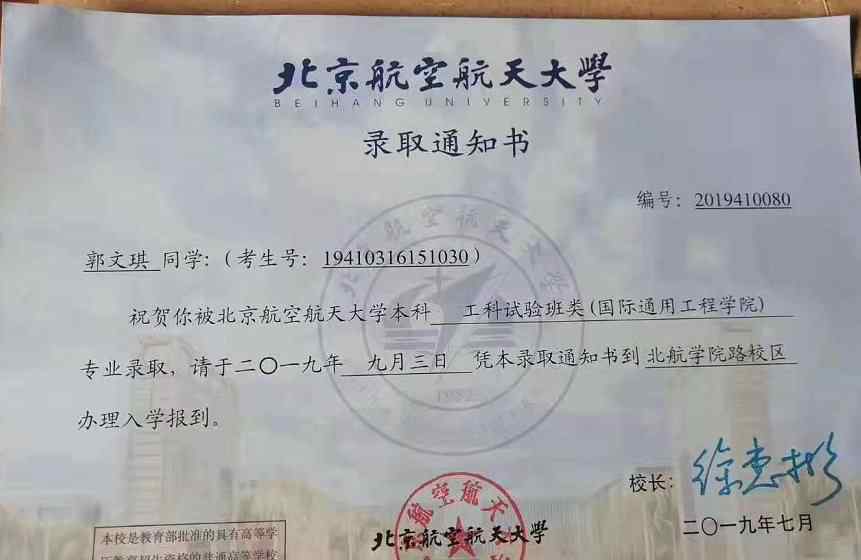 北京航空航天大學
BEIHANG UNIVERSITY
录取通知书
编号：2019410080
郭文琪 同学：（考生号：19410316151030）
祝贺你被北京航空航天大学本科 工科试验班类（国际通用工程学院）
专业录取，请于二〇一九年 九月三日 凭本录取通知书到 北航学院路校区
办理入学报到。
校长：徐惠彬
北京航空航天大學
二〇一九年七月
本校是教育部批准的具有高等学
历教育招生资格的普通高等学校